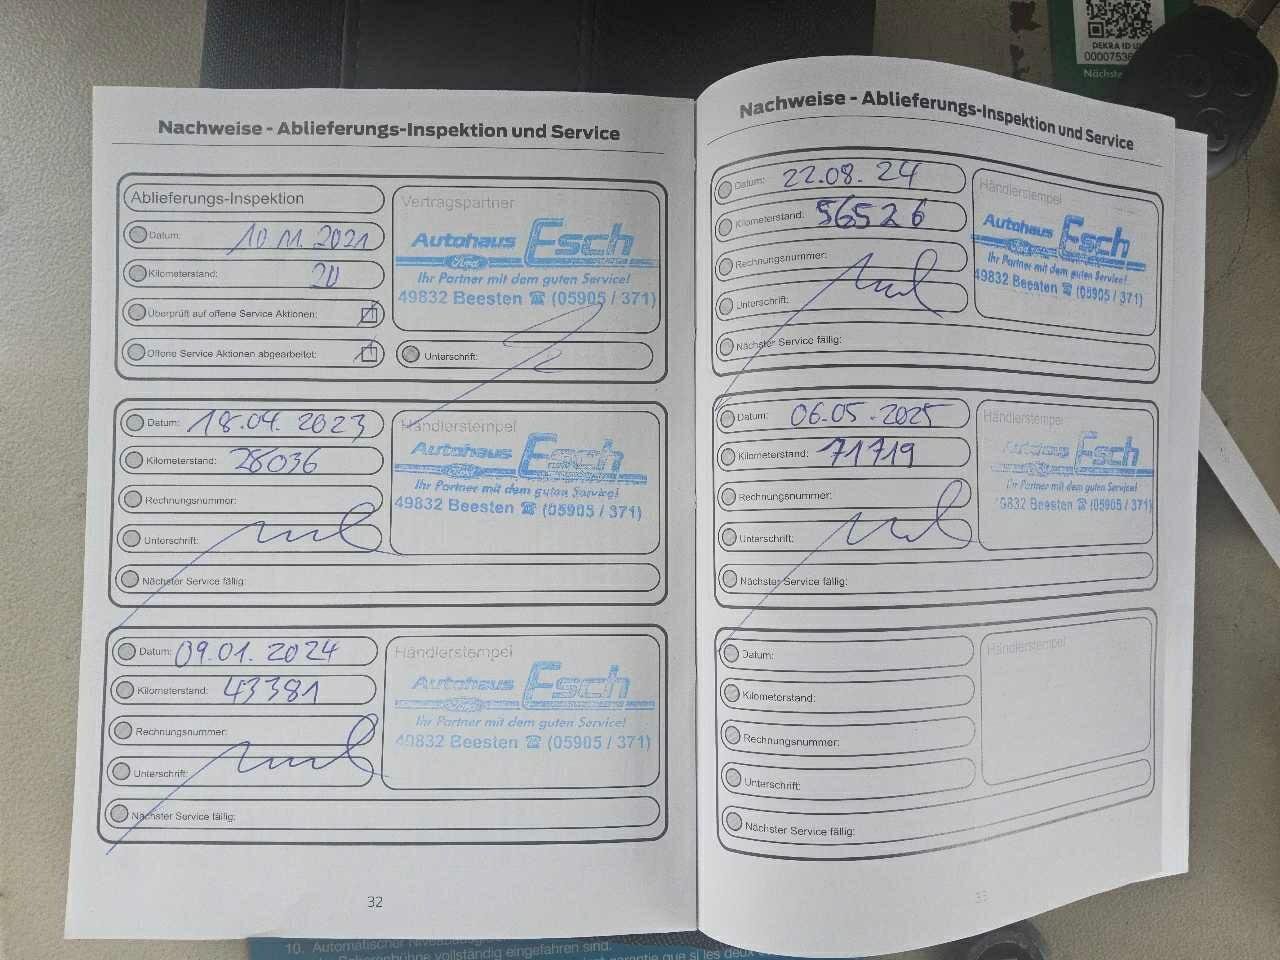 DEKRA ID U
0000753
Nächste
Nachweise - Ablieferungs-Inspektion und Service
Ablieferungs-Inspektion
Datum: 10.11.2021
Kilometerstand: 20
Überprüft auf offene Service Aktionen:
Offene Service Aktionen abgearbeitet:
Vertragspartner
Autohaus Esch
Ford
Ihr Partner mit dem guten Service!
49832 Beesten ☎ (05905 / 371)
Unterschrift:
Datum: 18.04.2023
Kilometerstand: 28036
Rechnungsnummer:
Unterschrift:
Nächster Service fällig:
Händlerstempel
Autohaus Esch
Ihr Partner mit dem guten Service!
49832 Beesten ☎ (05905 / 371)
Datum: 09.01.2024
Kilometerstand: 43381
Rechnungsnummer:
Unterschrift:
Nächster Service fällig:
Händlerstempel
Autohaus Esch
Ford
Ihr Partner mit dem guten Service!
49832 Beesten ☎ (05905 / 371)
32
Nachweise - Ablieferungs-Inspektion und Service
Datum: 22.08.24
Kilometerstand: 56526
Rechnungsnummer:
Unterschrift:
Nächster Service fällig:
Händlerstempel
Autohaus Esch
Ford
Ihr Partner mit dem guten Service!
49832 Beesten ☎ (05905 / 371)
Datum: 06.05.2025
Kilometerstand: 71719
Rechnungsnummer:
Unterschrift:
Nächster Service fällig:
Händlerstempel
Autohaus Esch
Ihr Partner mit dem guten Service!
9832 Beesten ☎ (05905 / 371)
Datum:
Kilometerstand:
Rechnungsnummer:
Unterschrift:
Nächster Service fällig:
Händlerstempel
33
10. Automatischer
vollständig eingefahren sind.
garantie que si les deux